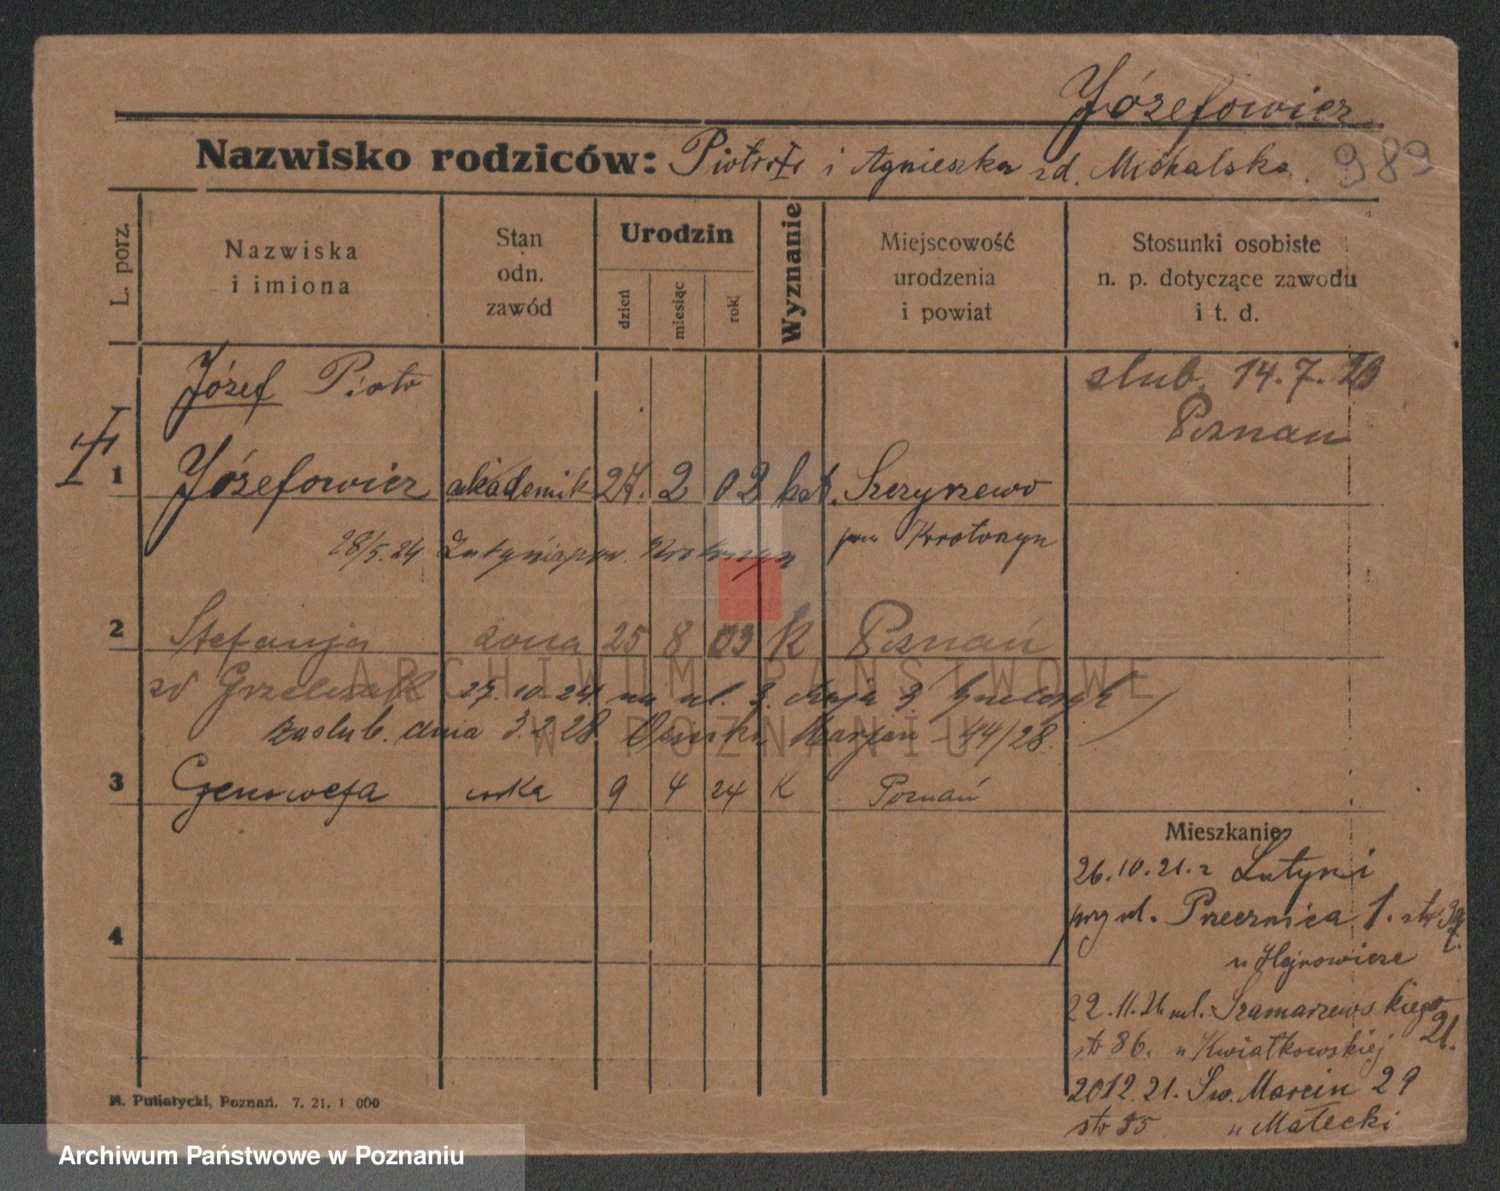 Józefowicz
Nazwisko rodziców: Piotr i Agnieszka zd. Michalska. 989
L. porz.
Nazwiska i imiona
Stan odn. zawód
Urodzin
dzień
miesiąc
rok
Wyznanie
Miejscowość urodzenia i powiat
Stosunki osobiste n. p. dotyczące zawodu i t. d.
Józef Piotr
ślub. 14.7.23
Poznań
1 Józefowicz akademik 27. 2 02 kat. Szczyszewo
28/5.24 Krotoszyn
pow Krotoszyn
2 Stefanja żona 25 8 03 k Poznań
zd Grzelczak 27.10.24. na ul. 3. Maja 3
zaślub. dnia 3.2.28 Marjan 44/28.
3 Genowefa córka 9 4 24 k Poznań
Mieszkanie
26.10.21. z Lutyni
przy ul. Przecznica 1. str
u Hejnowicza
22.11.21. ul. Szamarzewskiego 21.
str 86. u Kwiatkowskiej
20.12.21. Św. Marcin 29
str u Małecki
4
M. Putiatycki, Poznań. 7. 21. 1 000
ARCHIWUM PAŃSTWOWE
W POZNANIU
Archiwum Państwowe w Poznaniu